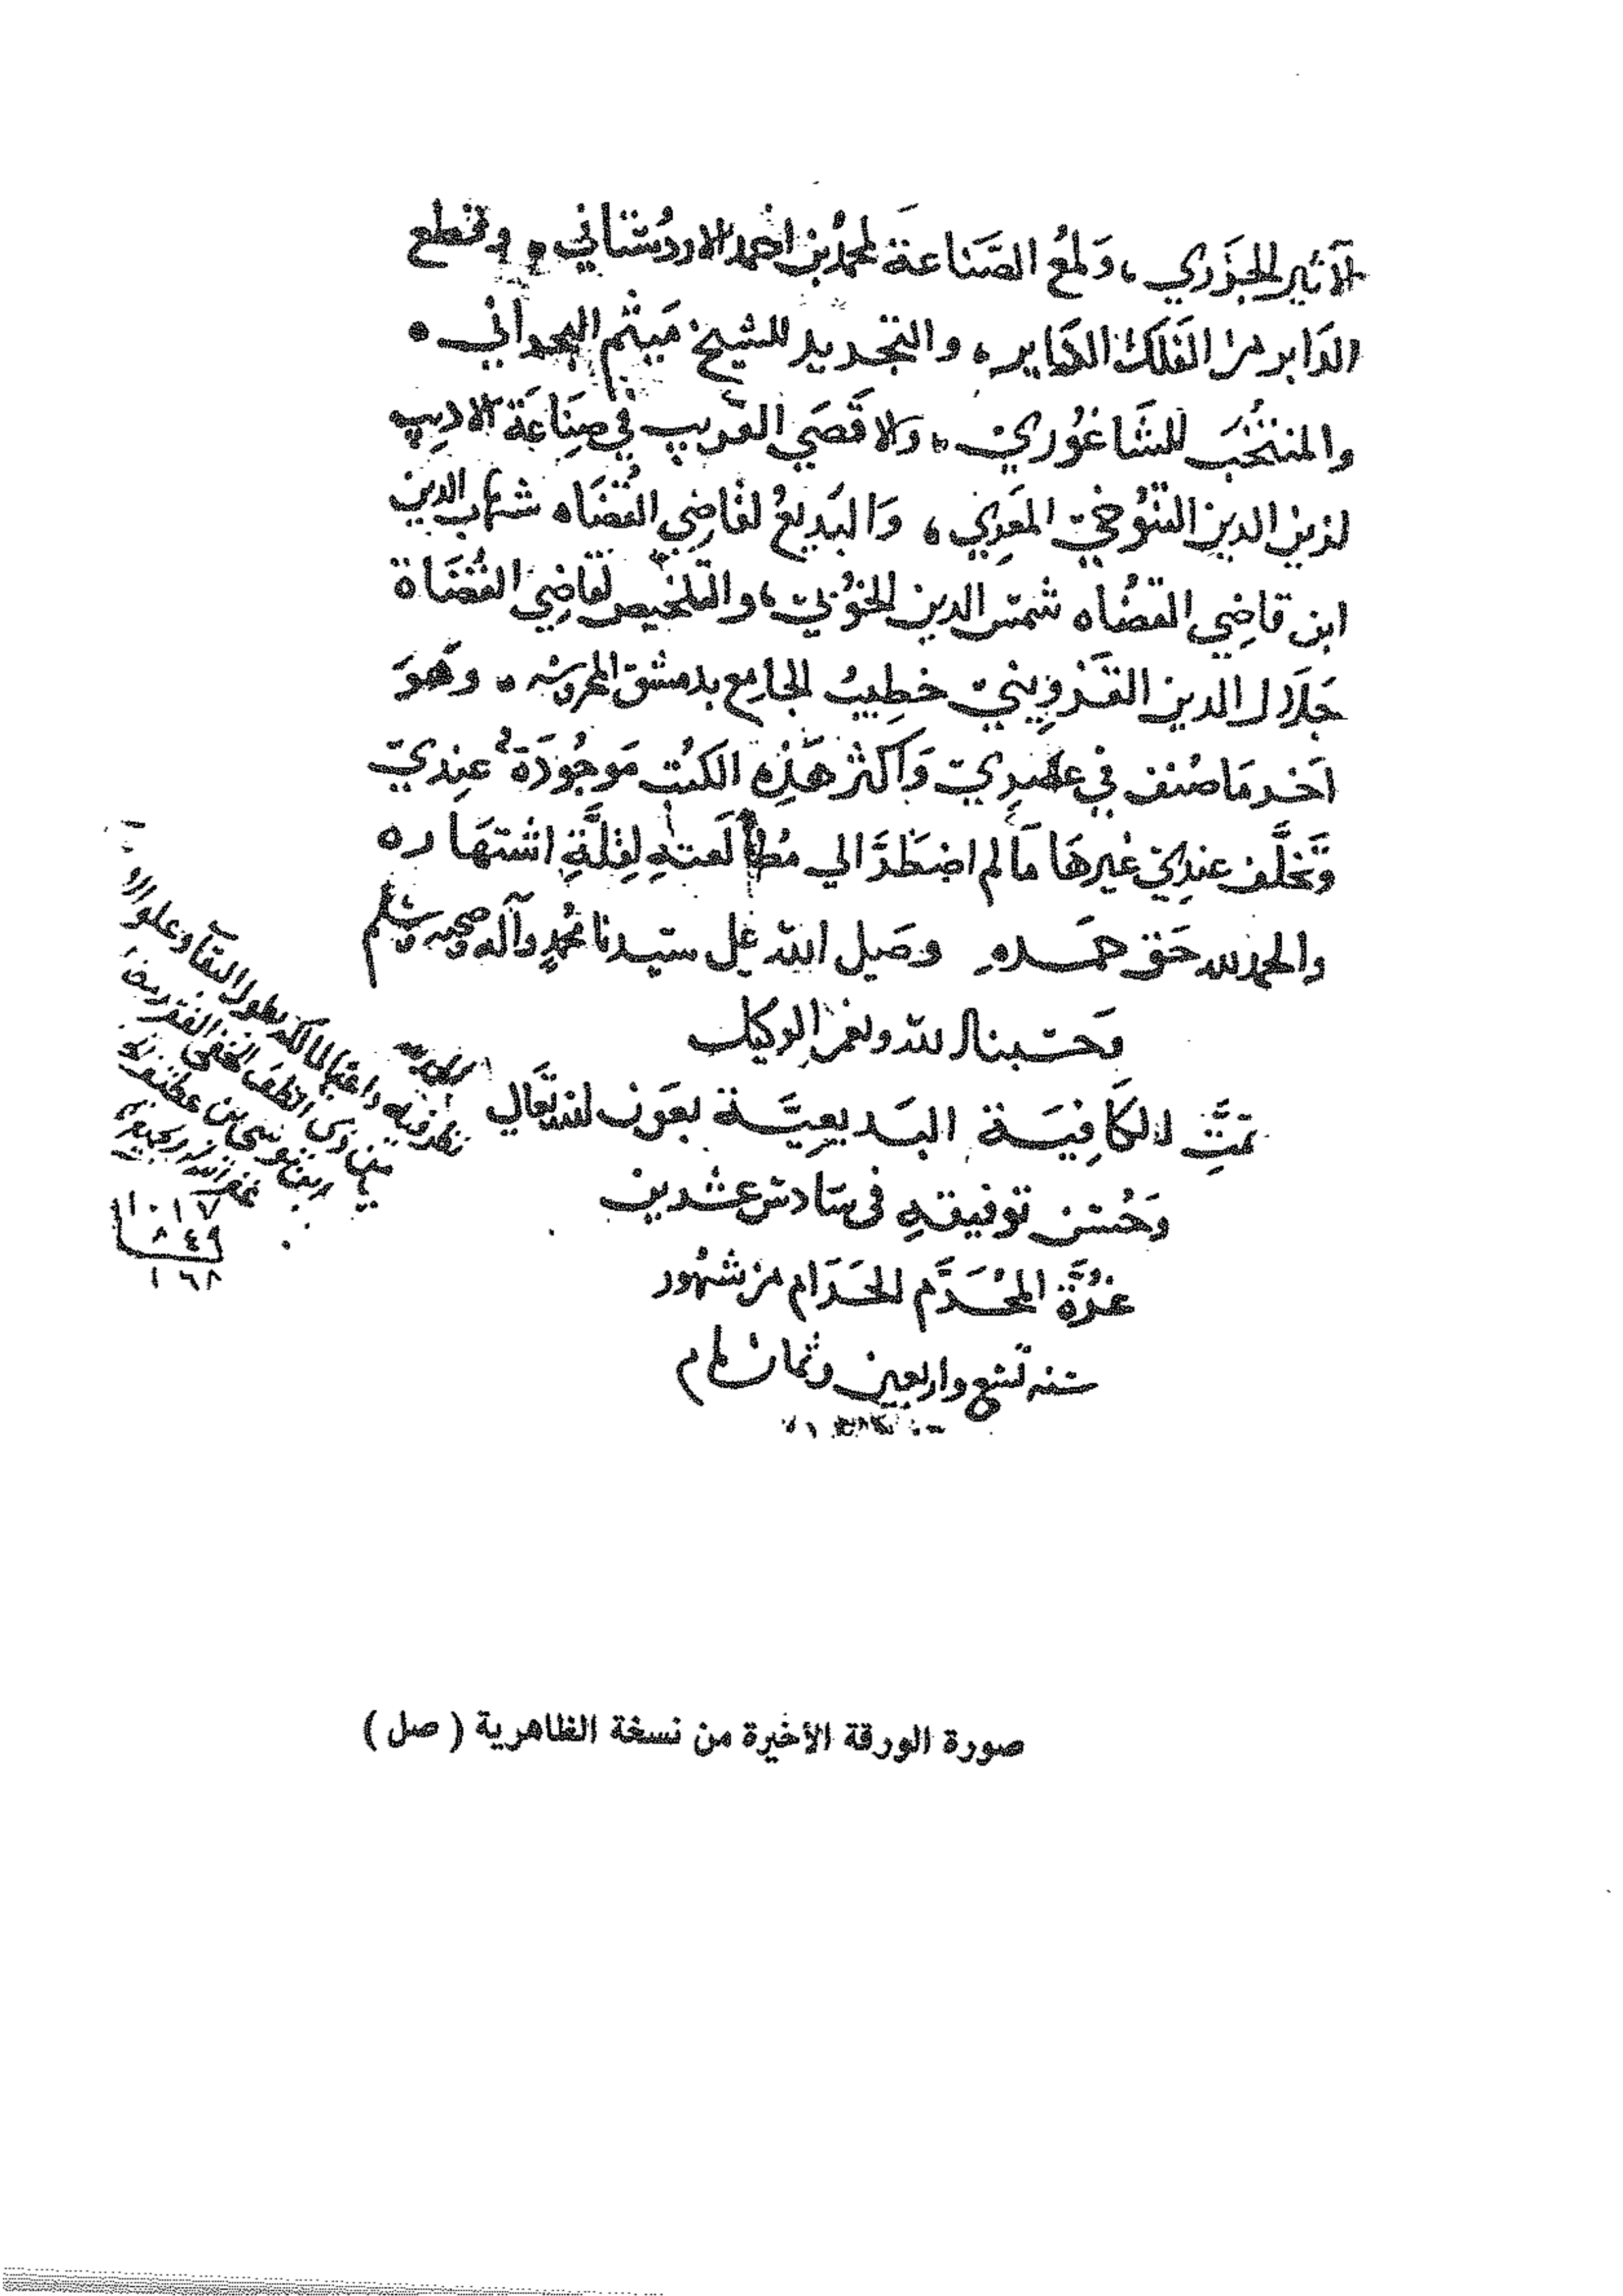 الأثير الجَزَري، وَلمعُ الصَّناعة لمحمدُ بن احمد الاردُستاني، وقطع
الدَابر من الفَلَك الدَاير، والتجريد للشيخ مَيثم البحراني.
والمنتخَب للشَاغُوري، وَالاقصَي القريب في صِنَاعَة الادِيبِ
لزين الدين التنوُخيّ المعَري، وَالبَديعُ لقاضِي القُضَاه شهاب الدين
ابن قاضِي القضُاه شمسُ الدين الخوُييّ، والتلخيص لقاضِي القُضَاة
جَلَال الدين القَزوِينيّ خطِيبُ الجامع بدمشق المحروسَه، وَهوَ
اَخر مَا صُنف في عصْرِيّ وَاكثر هَذِه الكتُب مَوجُودَةٌ عِندِيّ
وَتخلَّف عندِيّ غيرهَا مَا لم اضطَرَّ الي مُطالعتهِ لِقلَّةِ اشتهَاره
والحمد لله حَق حمَدهِ وصَلي الله علي سَيدنا مُحمدٍ وآله وصحبه وسَلم
وَحسبنا الله ونعم الوكيل
تمَّتِ الكَافِيَة البَديعِيَّة بعَون الله تَعَالي
وَحُسن توفيقهِ في سَادس عشرين
غُرَّة المُحَرَّم الحَرَام من شهُور
سَنه تسَع واربعين وثمان مايه
١٠١٧
٨٤٩
١٦٨
صورة الورقة الأخيرة من نسخة الظاهرية ( صل )